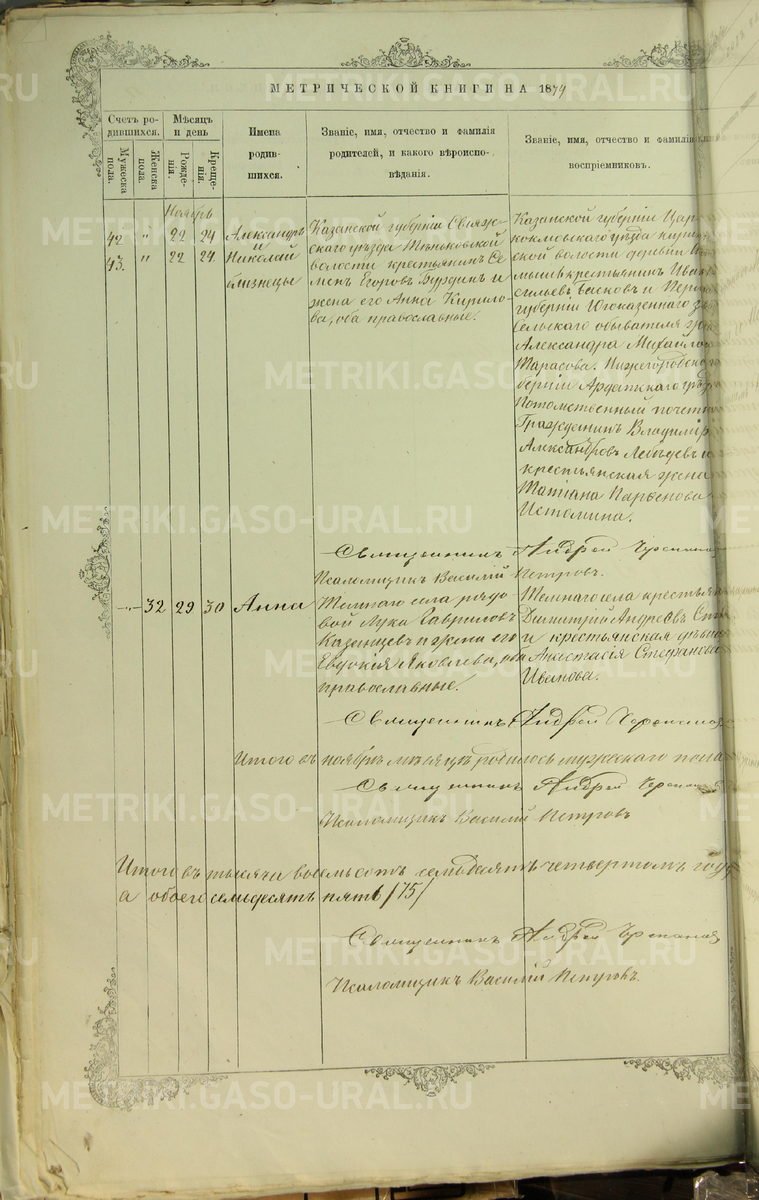 МЕТРИЧЕСКОЙ КНИГИ НА 1874
Счетъ родившихся.
Мужеска пола.
Женска пола.
Мѣсяцъ и день
Рожденія.
Крещенія.
Имена
родив-
шихся.
Званіе, имя, отчество и фамилія
родителей, и какого вѣроиспо-
вѣданія.
Званіе, имя, отчество и фамилія
воспріемниковъ.
Ноябрь
42 " 22 24 Александръ
и
43. " 22 24 Николай
близнецы
Казанской губерніи Свіяж-
скаго уѣзда Теньковской
волости крестьянинъ Се-
менъ Егоровъ Бурдинъ и
жена его Анна Кирило-
ва, оба православные.
Казанской губерніи Цар
кокшовскаго уѣзда
ской волости деревни
крестьянинъ Иван
сильевъ и
губерніи
сельскаго обывателя жена
Александра Михайлова
Тарасова. Нижегородской
берніи Ардатскаго уѣзда
Потомственный почетн
Гражданинъ Владиміръ
Александровъ Лебедевъ и
крестьянская жена
Татіана Парѳенова
Истомина.
Священникъ Андрей
Псаломщикъ Василій Петровъ.
-"- 32 29 30 Анна
села рядо
вой Лука Гавриловъ
Казанцевъ и жена его
Евдокія Яковлева, оба
православные.
села крестьян
Димитрій Андреевъ
и крестьянская дѣвица
Анастасія Стефанова
Иванова.
Священникъ Андрей
Итого въ ноябрѣ мѣсяцѣ родилось мужескаго пола
Священникъ Андрей
Псаломщикъ Василій Петровъ
Итого въ тысяча восемьсотъ семьдесятъ четвертомъ году
а обоего семьдесятъ пять /75/
Священникъ Андрей
Псаломщикъ Василій Петровъ.
METRIKI.GASO-URAL.RU